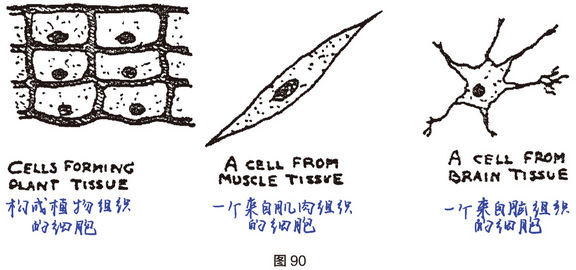 CELLS FORMING
PLANT TISSUE
构成植物组织
的细胞
A CELL FROM
MUSCLE TISSUE
一个来自肌肉组织
的细胞
A CELL FROM
BRAIN TISSUE
一个来自脑组织
的细胞
图90